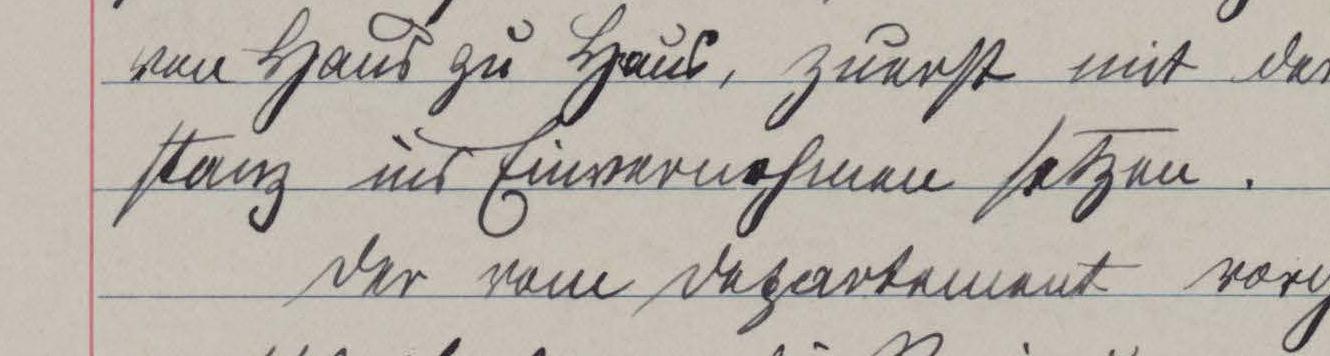 von Haus zu Haus, zuerst mit der
stanz ins Einvernehmen setzen.
Der vom Departement vorg